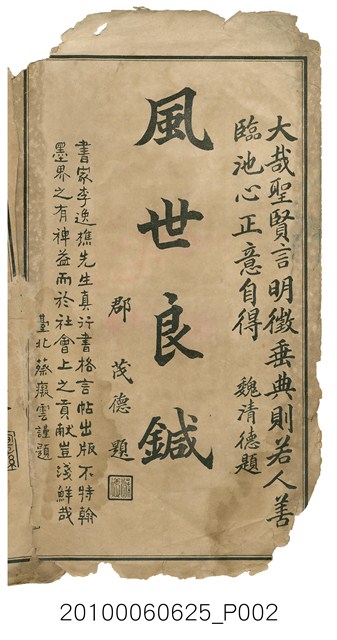 大哉聖賢言明徵垂典則若人善
臨池心正意自得 魏清德題
風世良鍼
郡 茂德 題
書家李逸樵先生真行書格言帖出版不特翰
墨界之有裨益而於社會上之貢獻豈淺鮮哉
臺北 蔡癡雲謹題
20100060625_P002